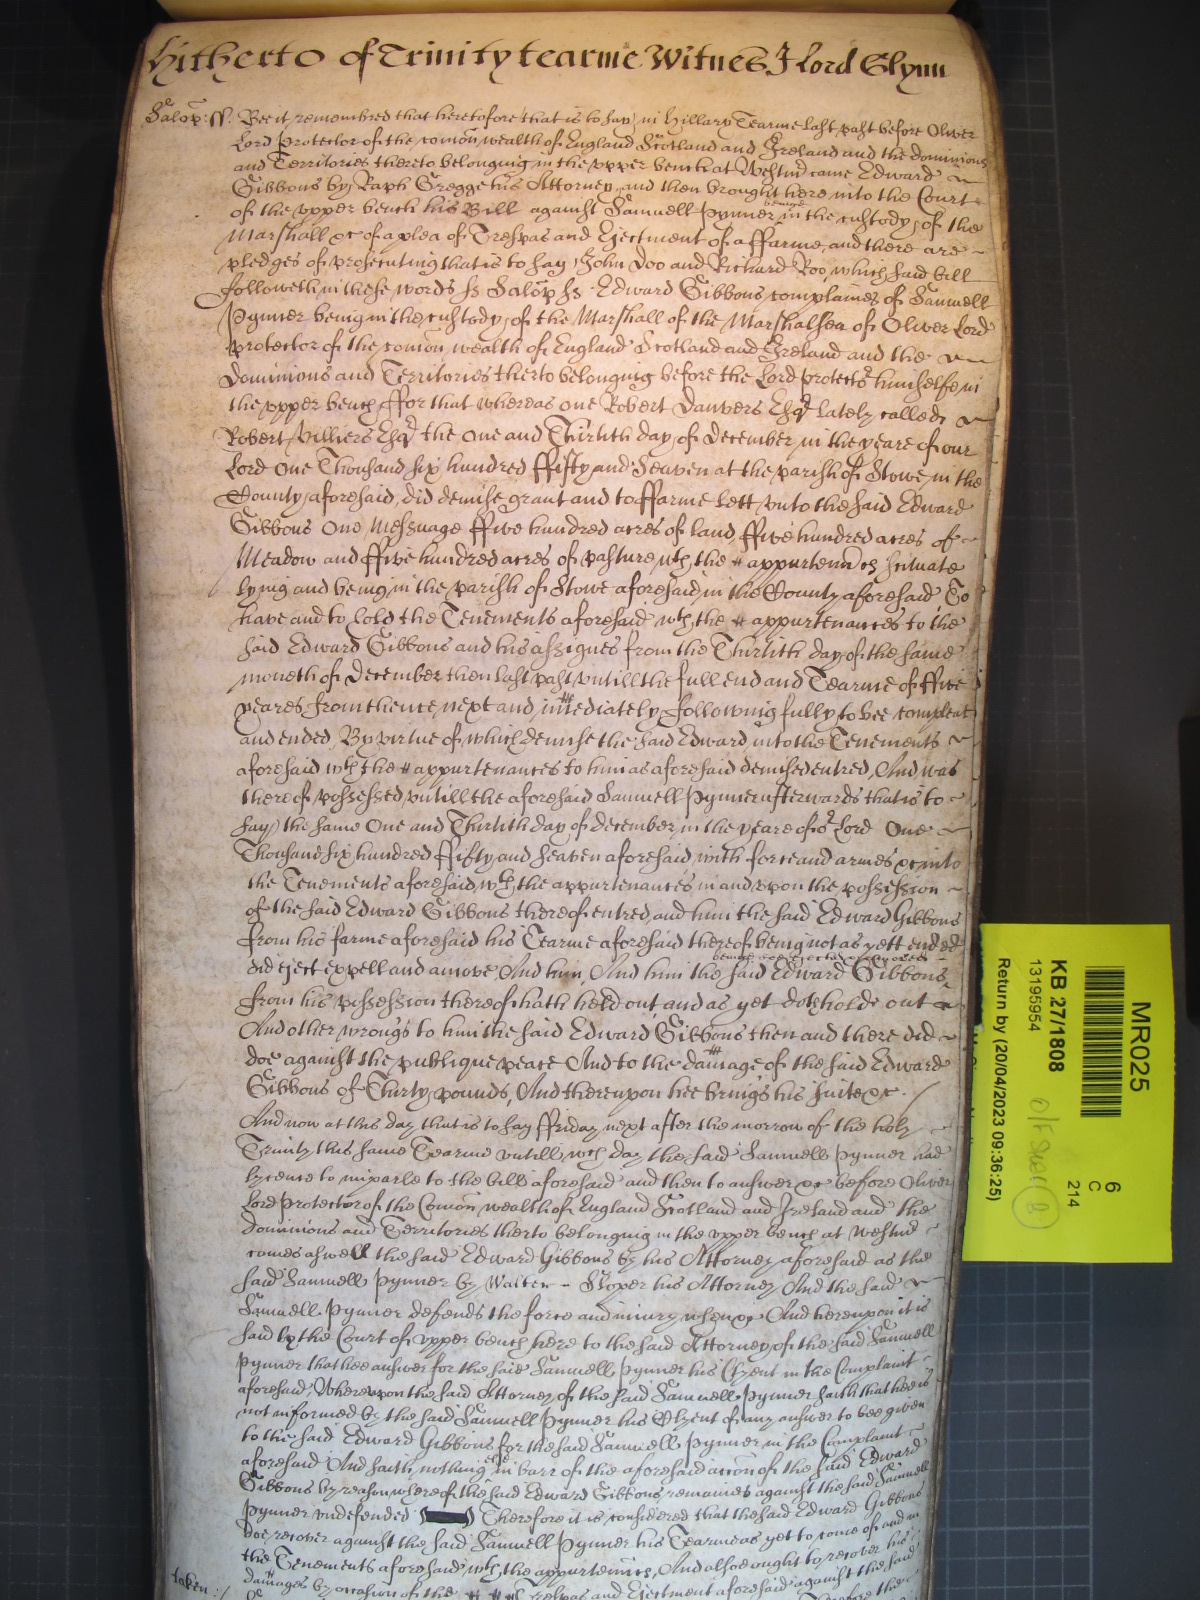 Hitherto of Trinity tearme Witnes J Lord Glynn
Salop: ss. Bee it remembred that heretofore that is to say in Hillary Tearme last past before Oliver
Lord Protector of the comon wealth of England Scotland and Ireland and the dominions
and Territories thereto belonging in the upper bench at Westmr came Edward
Gibbons by Raph Gregge his Attorney and then brought here into the Court
of the upper bench his Bill against Samuell Pynner beinge in the custody of the
Marshall &c of a plea of Trespas and Ejectment of a ffarme and there are
pledges of prosecuting that is to say John Doo and Richard Roo, which said bill
followeth in these words ss Salop ss. Edward Gibbons complaines of Samuell
Pynner being in the custody of the Marshall of the Marshalsea of Oliver Lord
protector of the comon wealth of England Scotland and Ireland and the
Dominions and Territories therto belonging before the Lord protector himselfe in
the upper bench ffor that whereas one Robert Danvers Esqr lately called
Robert Villiers Esqr the One and Thirtith day of December in the yeare of our
Lord One Thousand six hundred ffifty and Seaven at the parish of Stowe in the
County aforesaid, did demise grant and to ffarme lett unto the said Edward
Gibbons One Messuage ffive hundred acres of land, ffive hundred acres of
Meadow and ffive hundred acres of pasture wth the appurtennces scituate
lying and being in the parish of Stowe aforesaid in the County aforesaid To
have and to hold the Tenements aforesaid wth the appurtenances to the
said Edward Gibbons and his assignes from the Thirtith day of the same
moneth of December then last past untill the full end and Tearme of ffive
yeares from thence next and imediately following fully to bee compleat
and ended, By virtue of which demise the said Edward into the Tenements
aforesaid wth the appurtenances to him as aforesaid demised entred, And was
thereof possessed, untill the aforesaid Samuell Pynner afterwards that is to
say the same One and Thirtith day of December in the yeare of or Lord One
Thousand six hundred ffifty and seaven aforesaid with force and armes &c into
the Tenements aforesaid wth the appurtenances in and upon the possession
of the said Edward Gibbons thereof entred and him the said Edward Gibbons
from his farme aforesaid his Tearme aforesaid thereof being not as yett ended
did eject expell and amove And him, And him the said Edward Gibbons beinge soe ejected
from his possession thereof hath held out and as yet doth holde out
And other wrongs to him the said Edward Gibbons then and there did
doe against the publique peace And to the damage of the said Edward
Gibbons of Thirty pounds, And thereupon hee brings his suite &c.
And now at this day that is to say ffriday next after the morrow of the holy
Trinity this same Tearme untill wch day the said Samuell Pynner had
lycence to imparle to the bill aforesaid and then to answer &c before Oliver
Lord Protector of the Comon wealth of England Scotland and Ireland and the
dominions and Territories therto belonging in the upper bench at Westmr
comes aswell the said Edward Gibbons by his Attorney aforesaid as the
said Samuell Pynner by Walter Sloper his Attorney And the said
Samuell Pynner defends the force and injury when &c And hereupon it is
said by the Court of upper bench here to the said Attorney of the said Samuell
Pynner that hee answer for the said Samuell Pynner his Clyent in the Complaint
aforesaid, Whereupon the said Attorney of the said Samuell Pynner saith that hee is
not informed by the said Samuell Pynner his Clyent of any answer to bee given
to the said Edward Gibbons for the said Samuell Pynner in the Complaint
aforesaid And saith nothing els in barr of the aforesaid accon of the said Edward
Gibbons by reason whereof the said Edward Gibbons remaines against the said Samuell
Pynner undefended Therefore it is considered that the said Edward Gibbons
doe recover against the said Samuell Pynner his Tearme as yet to come of and in
the Tenements aforesaid wth the appurtennces, And alsoe ought to recover his
taken:/ damages by occasion of the Trespas and Ejectment aforesaid against the said
MR025
6
C
214
KB 27/1808
13195954
Return by (20/04/2023 09:36:25)